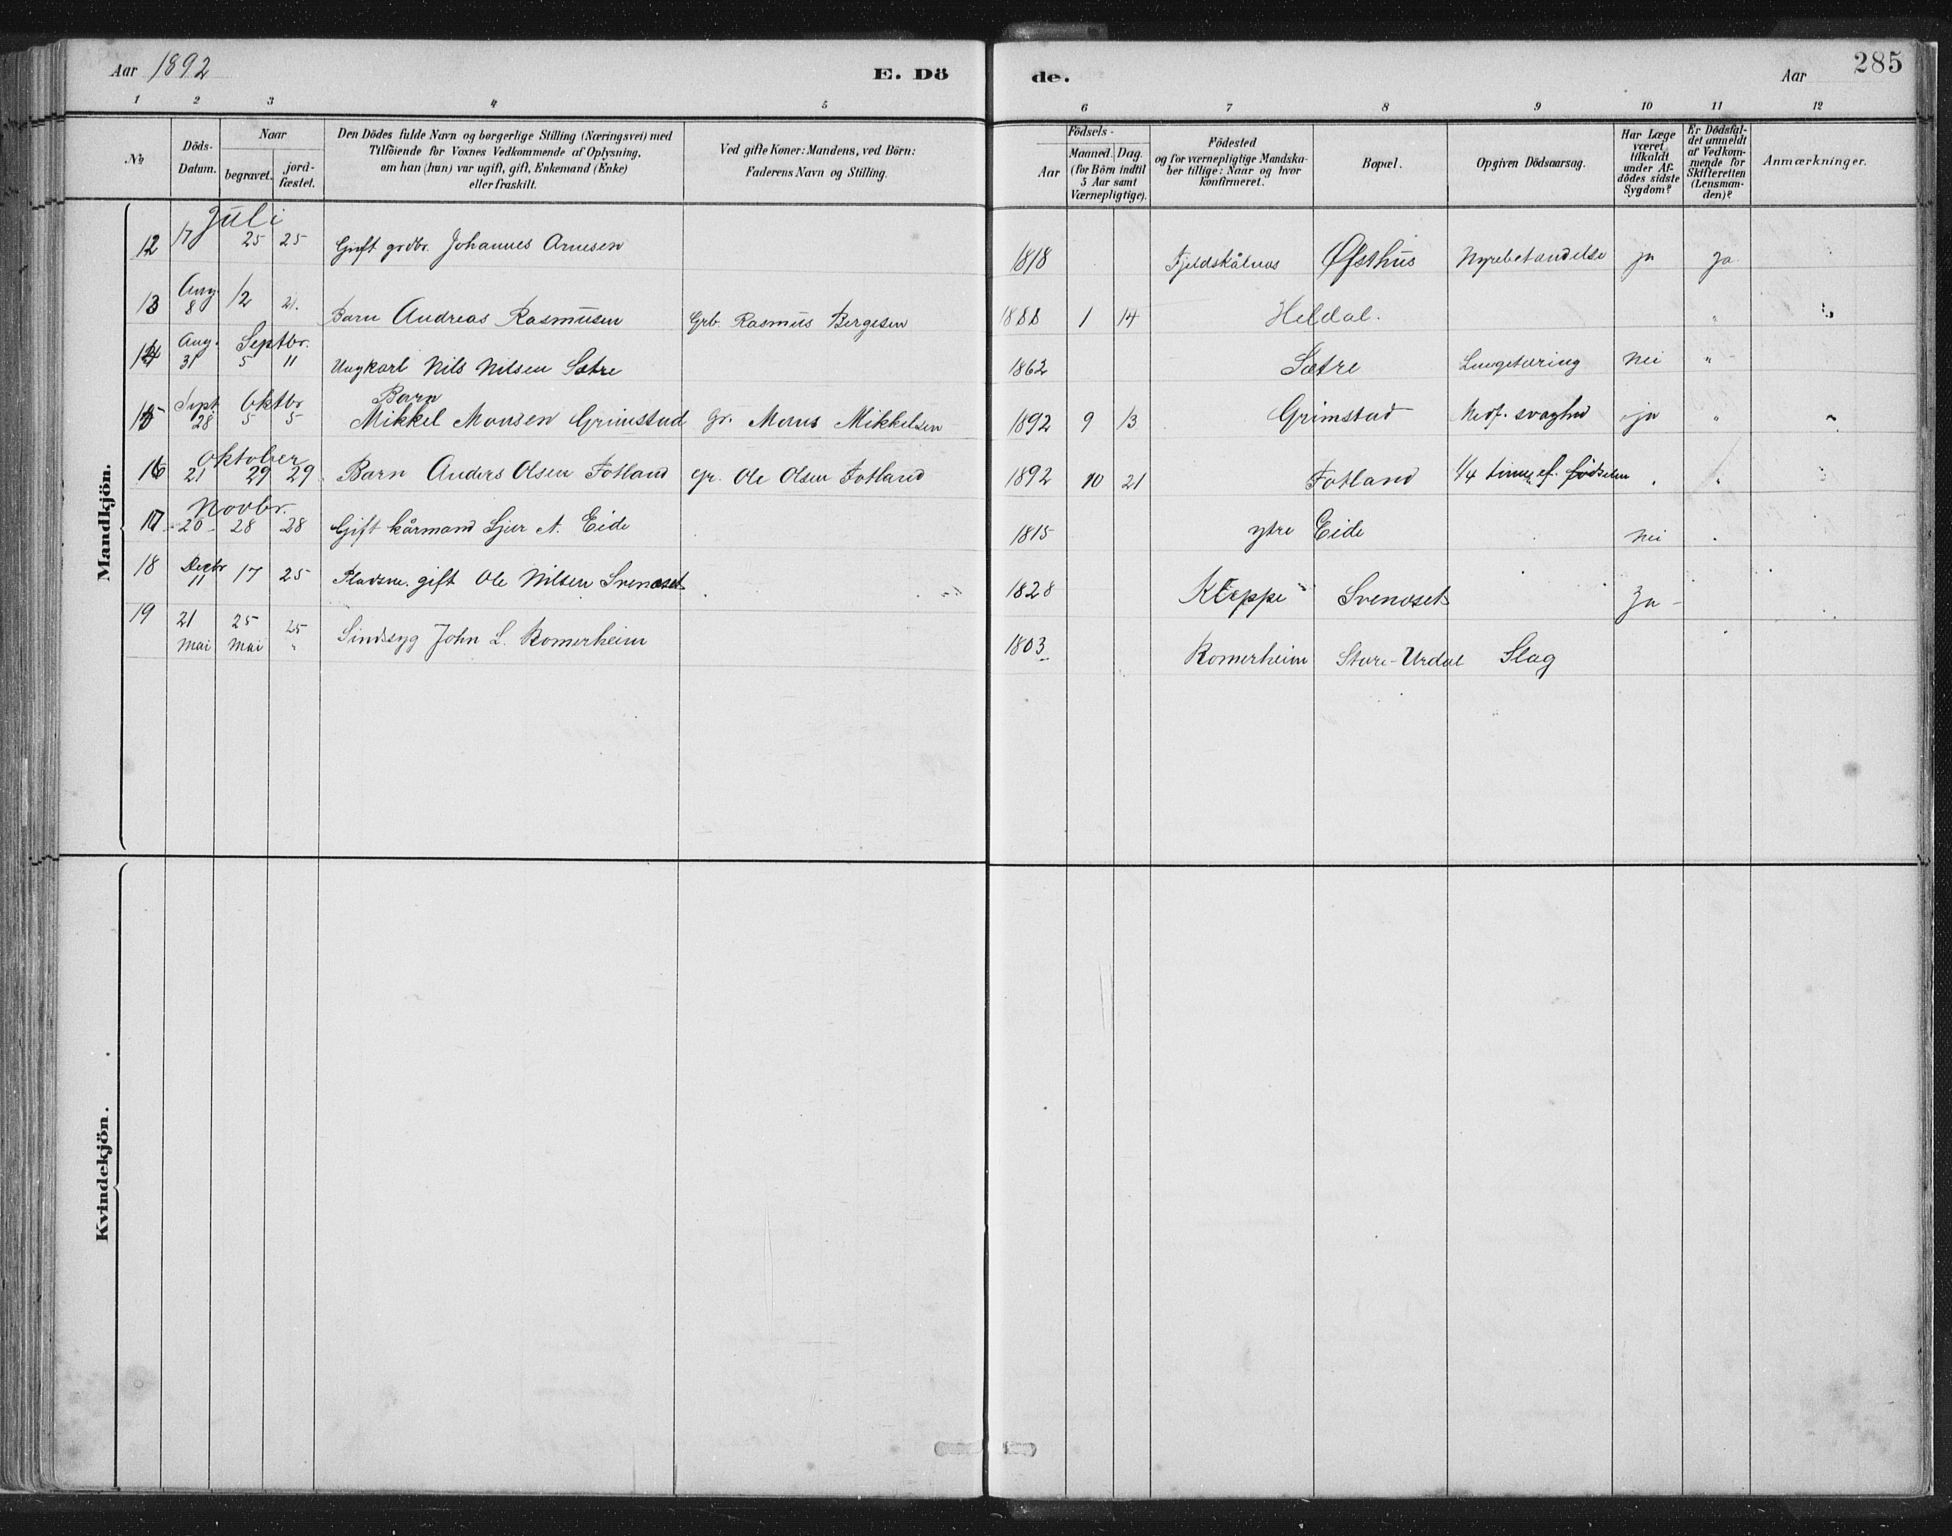 Aar 1892 E. Dö de. Aar 285
1 2 3 4 5 6 7 8 9 10 11 12
No
Döds-Datum.
Naar
begravet.
jord-fæstet.
Den Dödes fulde Navn og borgerlige Stilling (Næringsvei) med
Tilföiende for Voxnes Vedkommende af Oplysning,
om han (hun) var ugift, gift, Enkemand (Enke)
eller fraskilt.
Ved gifte Koner: Mandens, ved Börn:
Faderens Navn og Stilling.
Födsels-
Aar
Maaned. Dag.
(for Börn indtil
5 Aar samt
Værnepligtige).
Födested
og for værnepligtige Mandska-
ber tillige: Naar og hvor
konfirmeret.
Bopæl.
Opgiven Dödsaarsag.
Har Læge
været
tilkaldt
under Af-
dödes sidste
Sygdom?
Er Dödsfal-
det anmeldt
af Vedkom-
mende for
Skifteretten
(Lensman-
den)?
Anmærkninger.
Mandkjön.
Juli
12 17 25 25 Gift grdbr. Johannes Arnesen 1818 Fjeldskålnes Øfsthus Nyrebetændelse ja Ja
Aug
13 8 12 21. Barn Andreas Rasmusen Grb. Rasmus Bergesen 1888 1 14 Heldal. "
Aug. Septbr.
14 31 5 11 Ungkarl Nils Nilsen Sætre 1862 Sætre Lungetæring Nei "
Sept. Oktbr. Barn
15 28 5 5 Mikkel Monsen Grimstad gr. Mons Mikkelsen 1892 9 13 Grimstad Medf. svaghed ja "
Oktober
16 21 29 29 Barn Anders Olsen Fotland gr. Ole Olsen Fotland 1892 10 21 Fotland 1/4 time ef. födselen "
Novbr.
17 20 28 28 Gift kårmand Sjur A. Eide 1815 ytre Eide Nei
Decbr
18 11 17 25 Pladsm. gift Ole Nilsen Svenaset 1828 Kleppe Svenaset Ja
19 21 25 25 Sindssyg John L. Romerheim 1803 Romerheim Store-Urdal Slag
Mai Mai "
Kvindekjön.